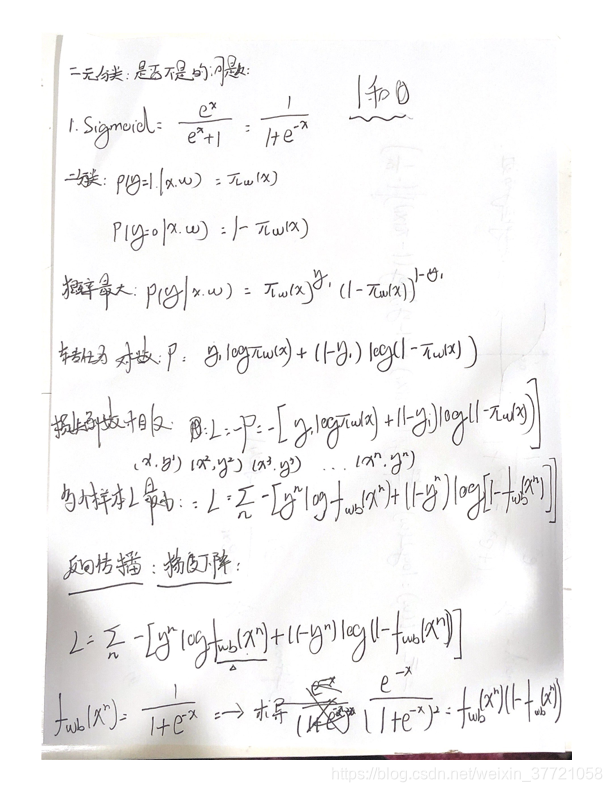 二元分类: 是否不是的问题:
1和0
1. Sigmoid = e^x / (e^x+1) = 1 / (1+e^{-x})
二分类: P(y=1|x.w) = π_w(x)
P(y=0|x.w) = 1-π_w(x)
概率最大: P(y|x.w) = π_w(x)^{y_i} (1-π_w(x))^{1-y_i}
转化为 对数: P: y_i log π_w(x) + (1-y_i) log(1-π_w(x))
损失函数 L=-P=-[y_i log π_w(x) + (1-y_i) log(1-π_w(x))]
(x^1.y^1) (x^2.y^2) (x^3.y^3) ... (x^n.y^n)
每个样本L最小: L = Σ_n -[y^n log f_wb(x^n) + (1-y^n) log[1-f_wb(x^n)]]
反向传播: 梯度下降:
L = Σ_n -[y^n log f_wb(x^n) + (1-y^n) log(1-f_wb(x^n))]
f_wb(x^n) = 1 / (1+e^{-x}) => 求导 e^{-x} / (1+e^{-x})^2 = f_wb(x^n)(1-f_wb(x^n))
https://blog.csdn.net/weixin_37721058